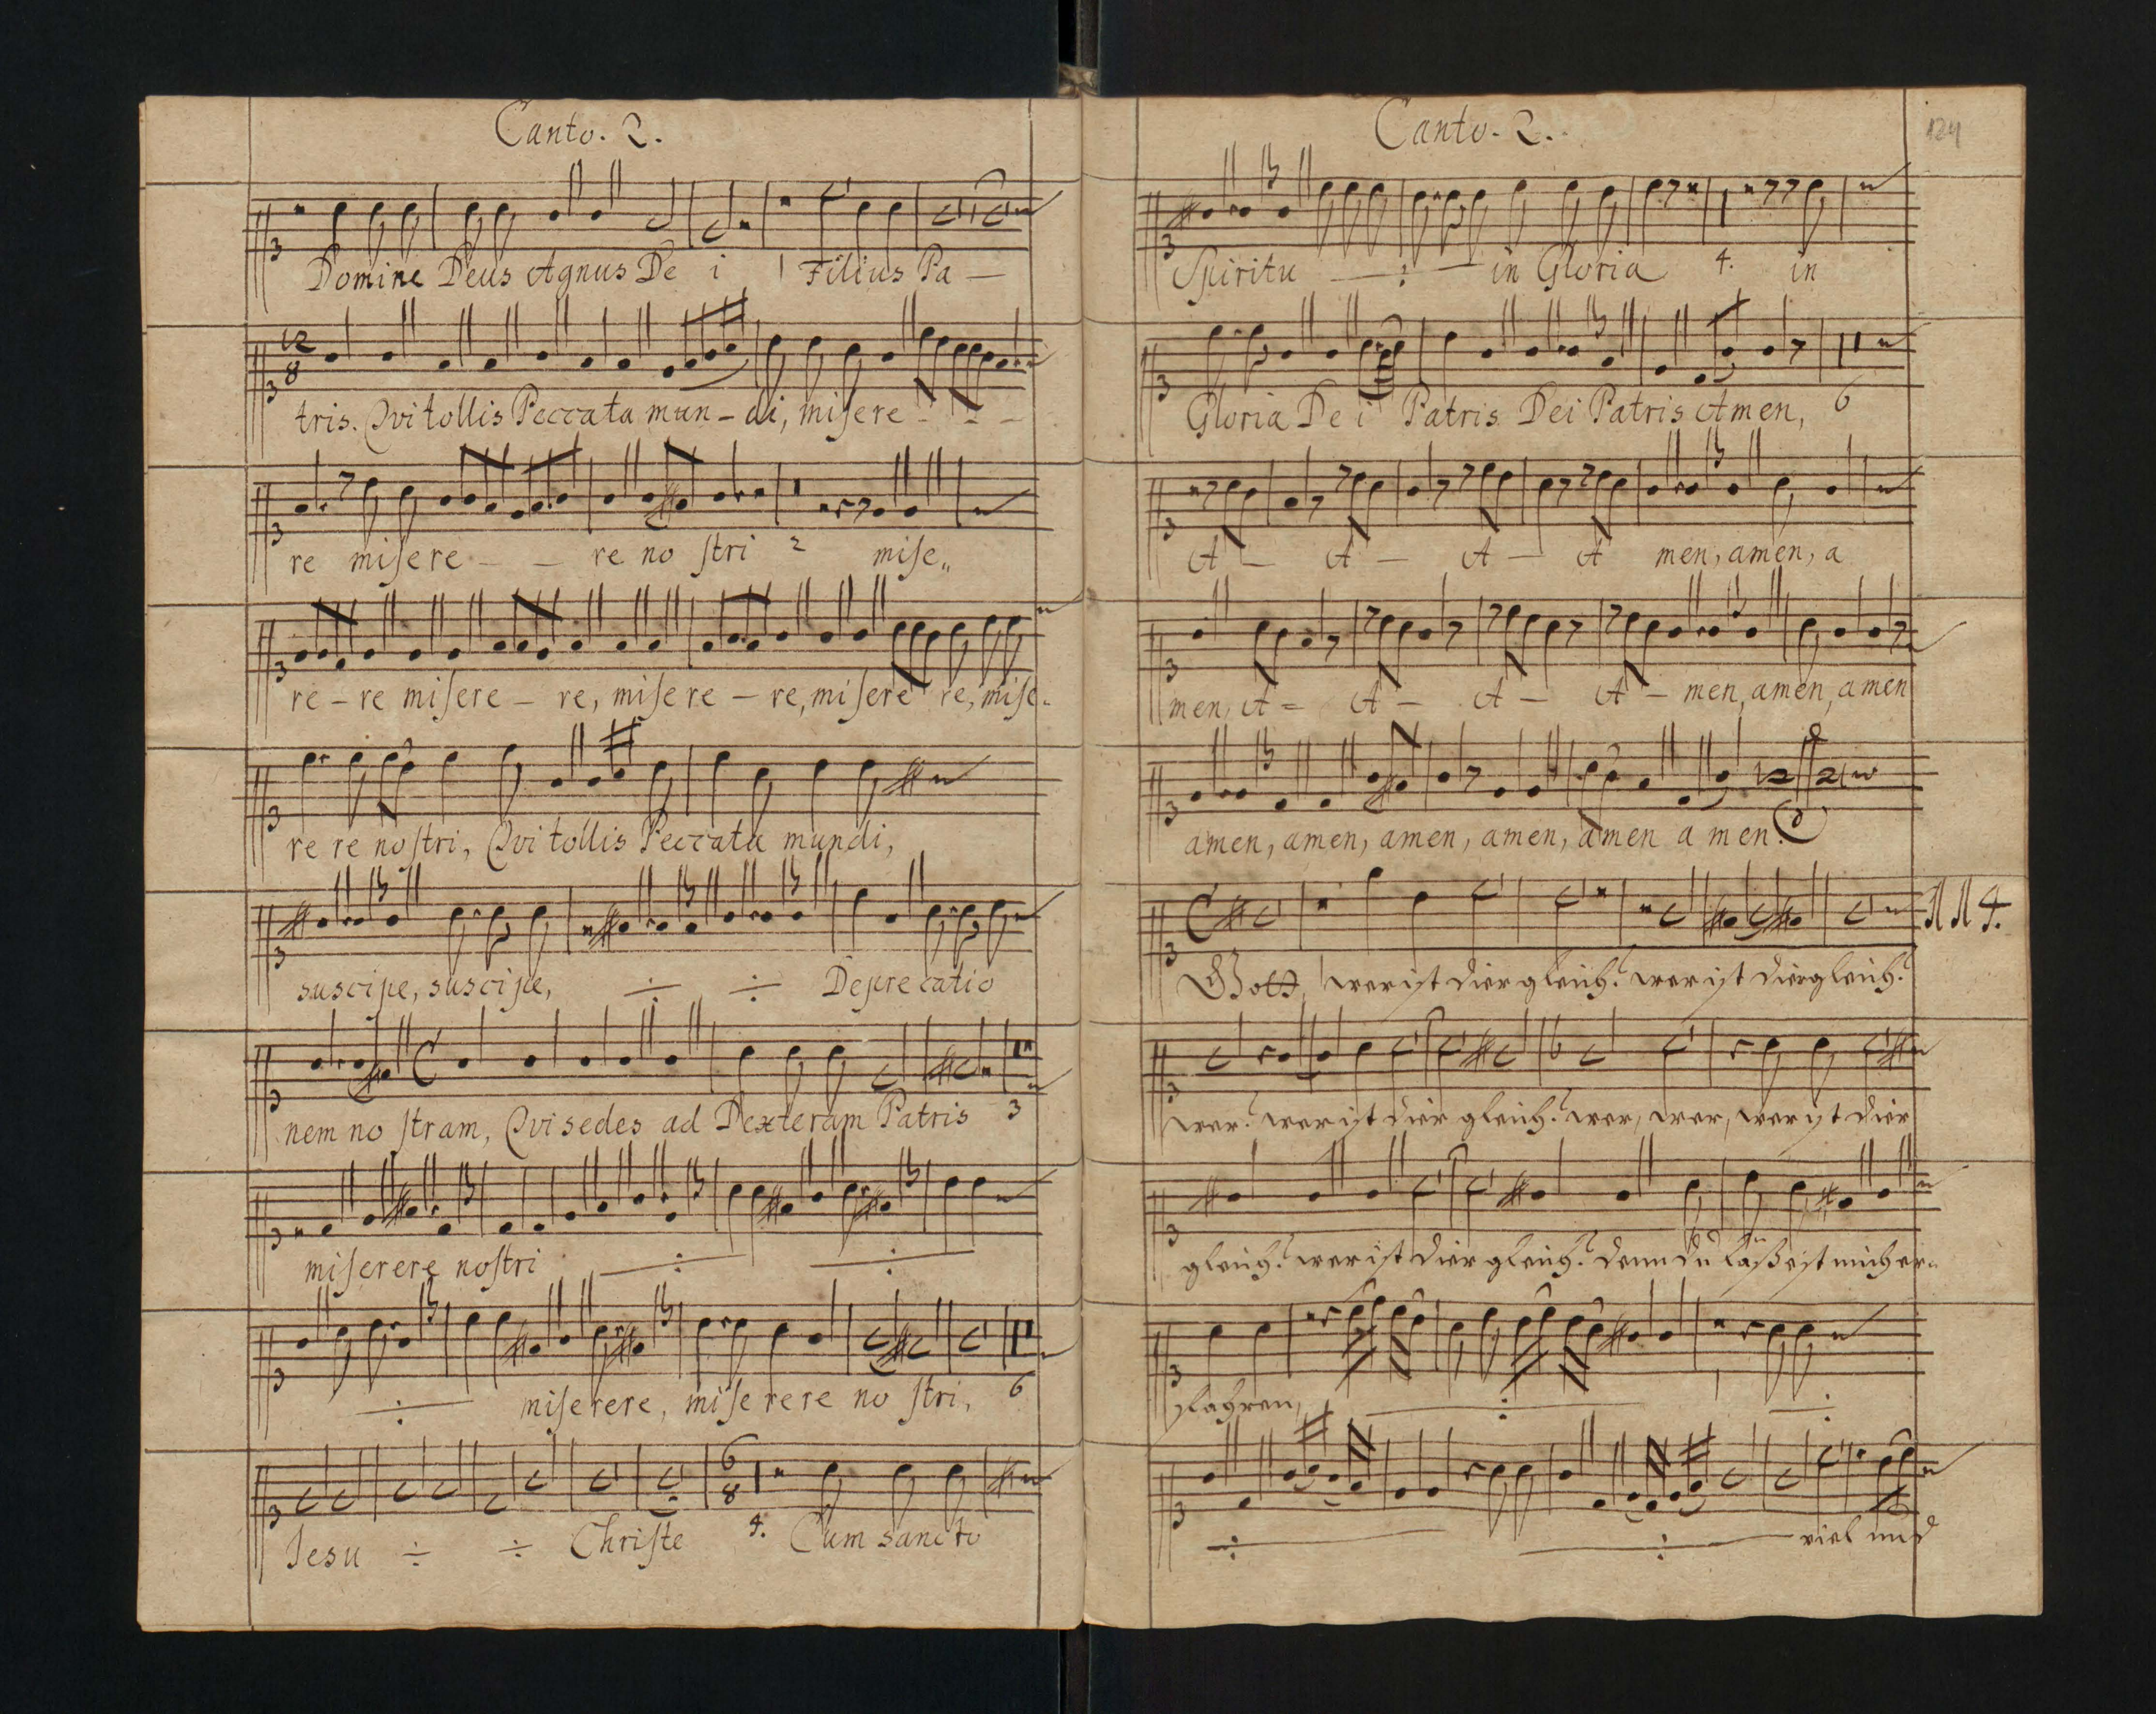 Canto. 2.
Domine Deus Agnus De i 1 Filius Pa —
12 8
tris. Qvi tollis Peccata mun - di, misere - - -
re misere - - re no stri 2 mise„
re - re misere - re, mise re - re, misere re, mise„
re re nostri, Qvi tollis Peccata mundi,
suscipe, suscipe, ÷ ÷ Deprecatio
nem no stram, Qvi sedes ad Dexteram Patris 3
miserere nostri ÷ ÷
÷ miserere, mise rere no stri, 6
6 8
Jesu ÷ ÷ Christe 4. Cum sancto
Canto. 2.
124
Spiritu ÷ in Gloria 4. in
Gloria De i Patris Dei Patris Amen, 6
A - A - A - A men, amen, a
men, A = A - A - A - men, amen, amen
amen, amen, amen, amen, amen a men.
114.
Gott, wer ist dier gleich? wer ist dier gleich?
wer? wer ist dier gleich? wer, wer, wer ist dier
gleich? wer ist dier gleich? denn du läßest mich er„
fahren, ÷ ÷
÷ ÷ viel und